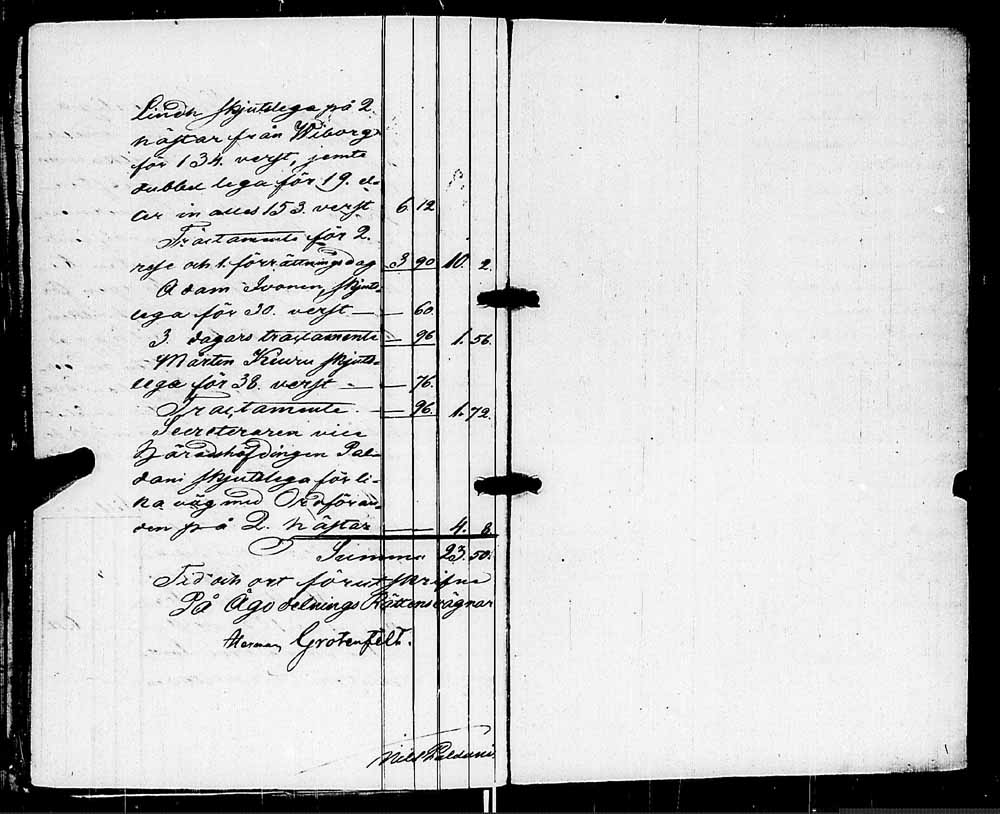 Lindh skjutslega på 2.
hästar från Wiborg
för 134. verst, jemte
dubbel lega för 19. el-
ler in alles 153. verst 6. 12
Tractamente för 2.
rese och 1. förrättningsdag 3 90 10. 2.
Adam Ivonen, skjuts-
lega för 30. verst — — 60.
3. dagars tractamente — 96 1. 56.
Mårten Keuru skjuts-
lega för 38. verst — — 76.
Tractamente. — 96. 1. 72.
Secreteraren vice
Häradshöfdingen Pal-
dani skjutslega för li-
ka väg med Ordföran-
den på 2. hästar — — 4. 8.
Summa 23. 50.
Tid och ort förut skrifne
På Ägodelnings Rättens vägnar
Herman Grotenfelt.
Nils Paldani